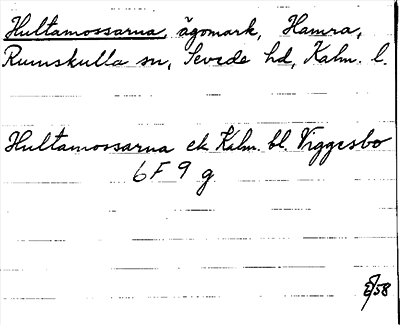 Hultamossarna, ägomark, Hamra,
Rumskulla sn, Sevede hd, Kalm. l.
Hultamossarna ek Kalm. bl. Viggesbo
6 F 9 g
/58